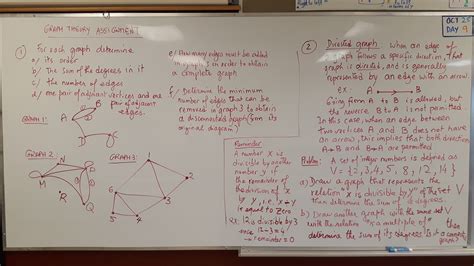 GRAPH THEORY ASSIGNMENT
① For each graph determine
a/ its order
b/ The sum of the degrees in it
c/ the number of edges
d/ one pair of adjacent vertices and one
pair of adjacent
edges.
GRAPH 1:
A
B
D
C
GRAPH 2:
M
N
O
P
R
Q
e/ How many edges must be added
in graph 3 in order to obtain
a complete graph
f/ Determine the minimum
number of edges that can be
removed in graph 3 to obtain
a disconnected graph (from its
original diagram)
GRAPH 3:
1
2
3
4
5
6
Reminder
A number X is
divisible by another
number y if
the remainder of
the division of X
by y, i.e. X ÷ y
is equal to Zero
ex: 12 is divisible by 3
since 12÷3=4
remainder = 0
OCT 25
DAY 9
② Directed graph: when an edge of
a graph follows a specific direction, that
graph is directed and is generally
represented by an edge with an arrow.
ex: A B
Going from A to B is allowed, but
the reverse B to A is not permitted
In this case, when an edge between
two vertices A and B does not have
an arrow, this implies that both direction
A→B and B→A are permitted
Problem: A set of integer numbers is defined as
V = {2, 3, 4, 5, 8, 12, 14}
a) Draw a graph that represents the
relation "x is divisible by y" of the set V
then determine the sum of degrees.
b) Draw another graph with the same set V
with the relation "x a multiple of" then
determine the sum of its degrees. Is it a
graph?